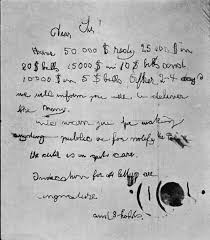 Dear Sir!
Have 50.000 $ redy 25000 $ in
20 $ bills 15000 $ in 10 $ bills and
10000 $ in 5 $ bills After 2-4 days
we will inform you were to deliver
the mony.
We warn you for making
anyding public or for notify the
the child is in gut care.
Indication for all letters are
singnature
and 3 holes.